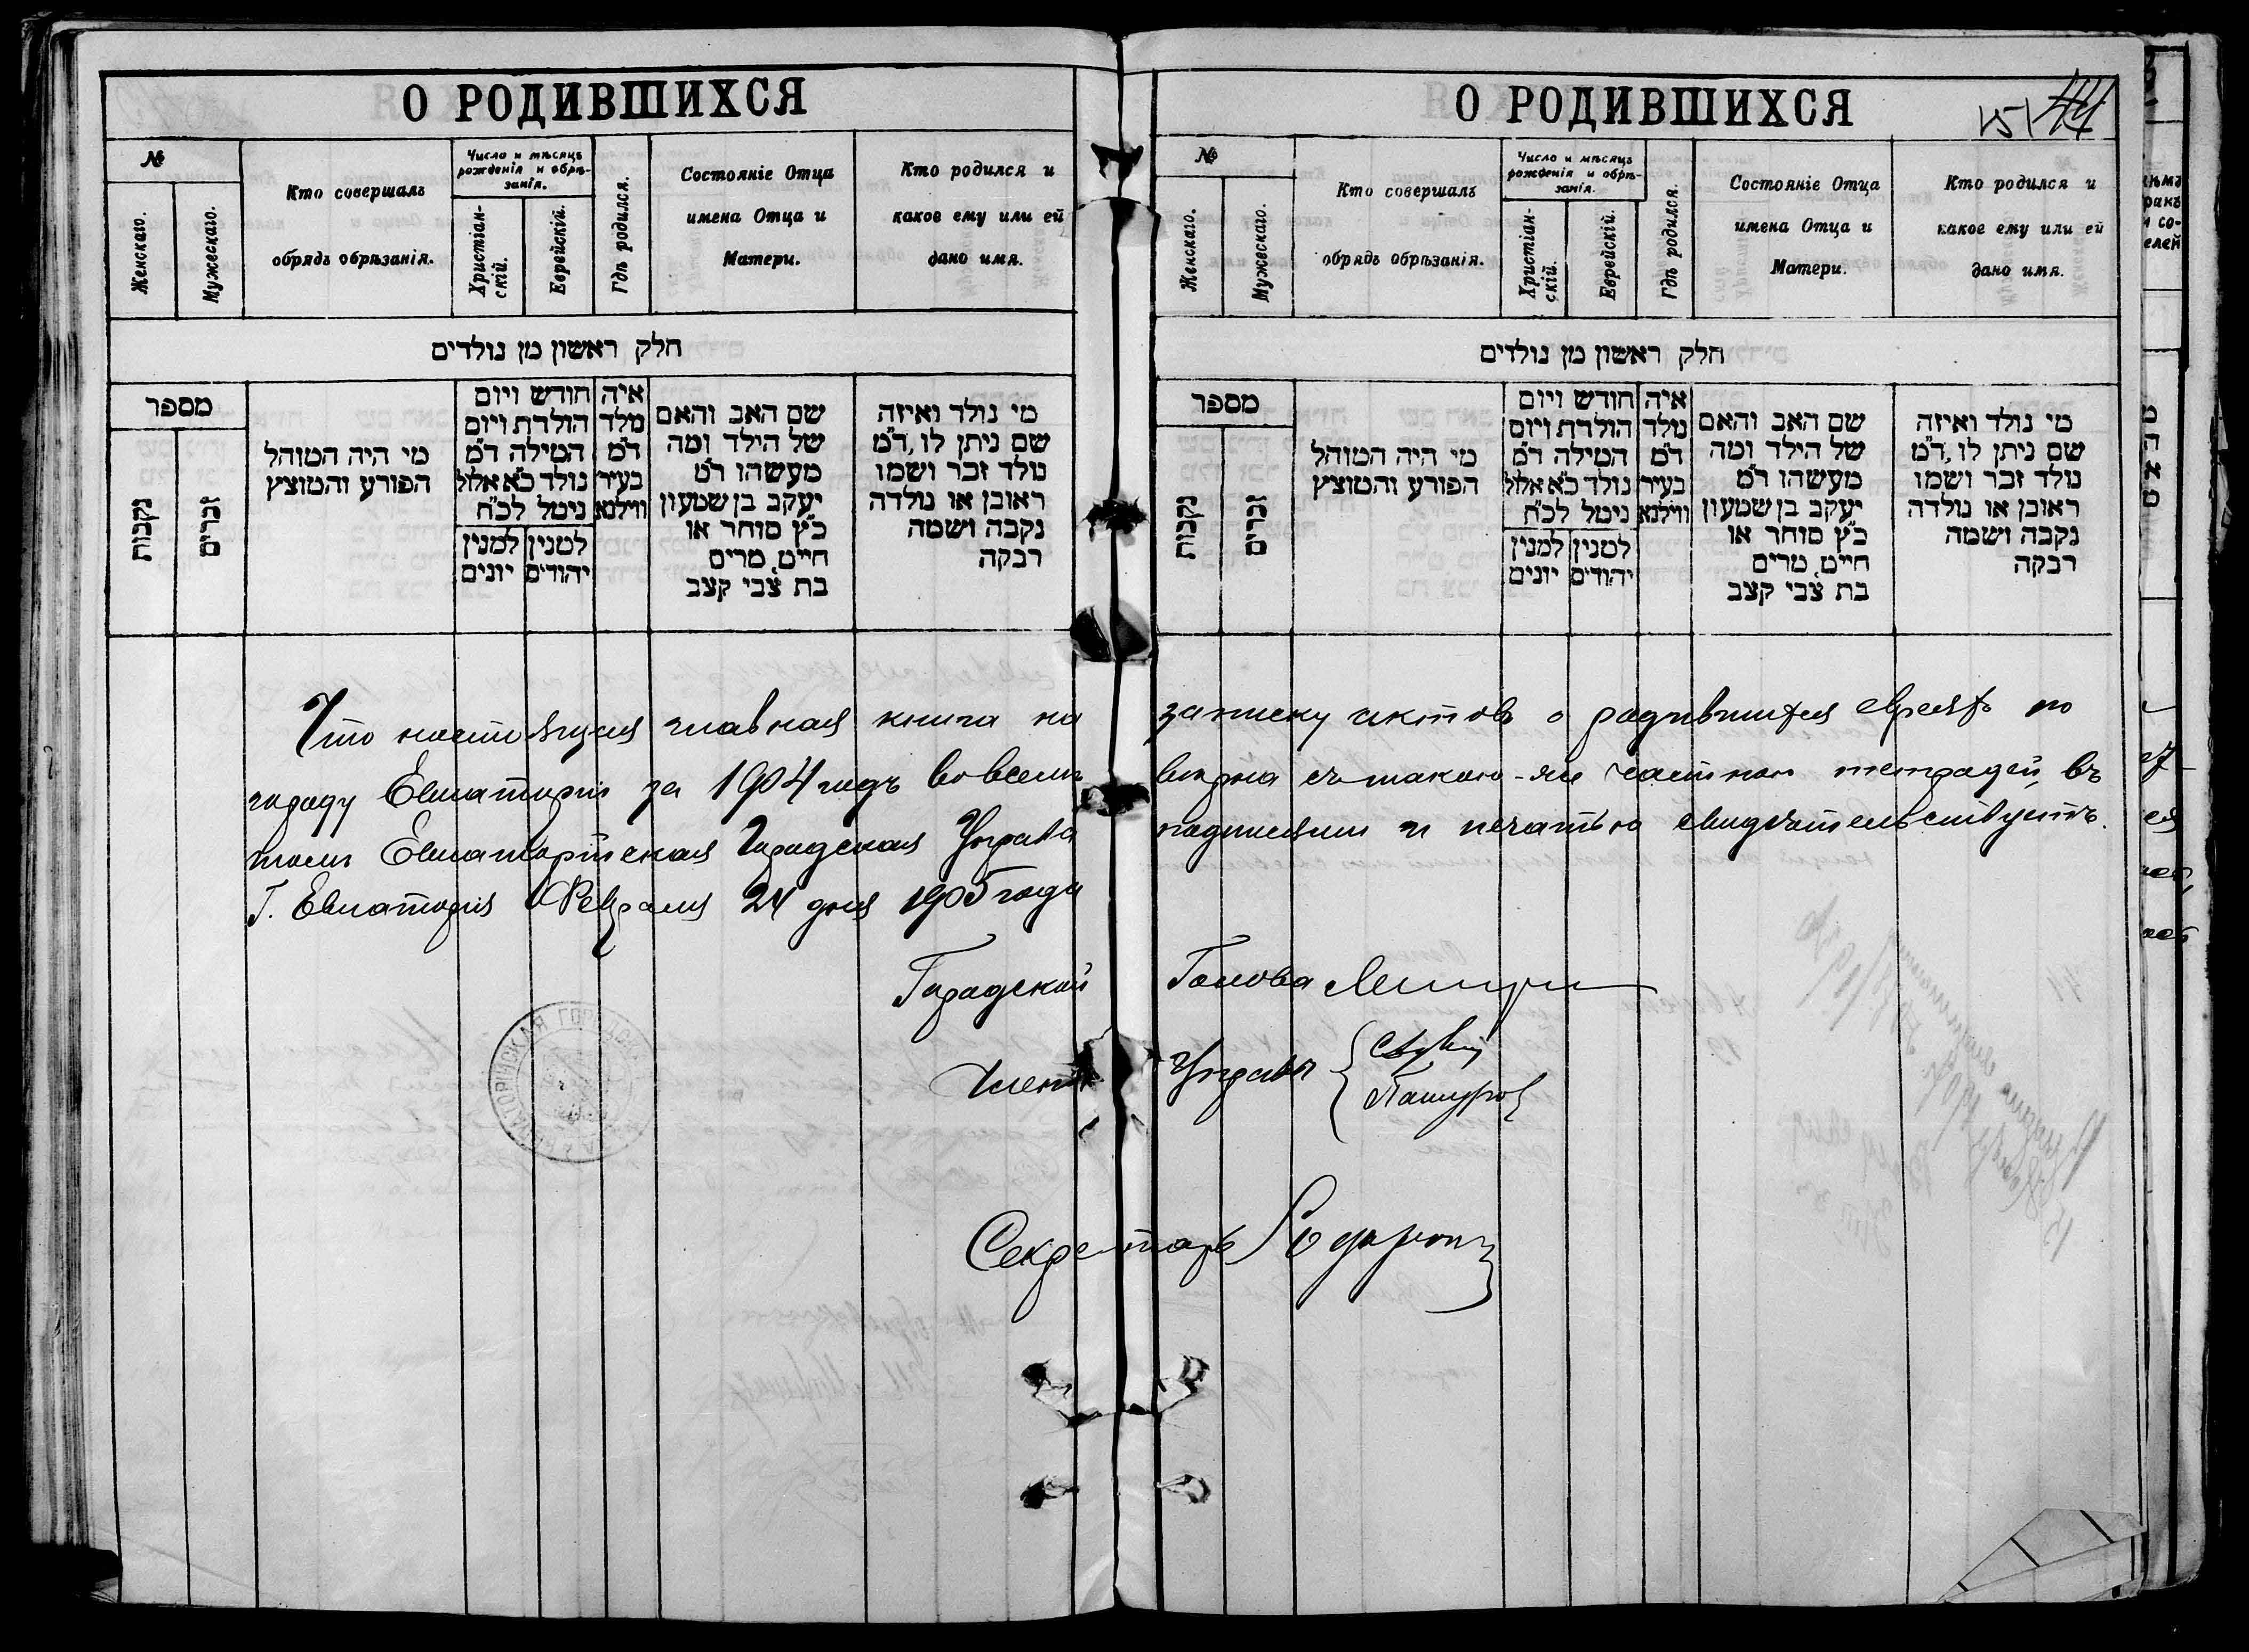 О РОДИВШИХСЯ
№
Женскаго.
Мужескаго.
Кто совершалъ
обрядъ обрѣзанія.
Число и мѣсяцъ
рожденія и обрѣ-
занія.
Христіан-
скій.
Еврейскій.
Гдѣ родился.
Состояніе Отца
имена Отца и
Матери.
Кто родился и
какое ему или ей
дано имя.
חלק ראשון מן נולדים
מספר
נקבות
זכרים
מי היה המוהל
הפורע והמוצץ
חודש ויום
הולדת ויום
המילה ד״מ
נולד כ״א אלול
נימל לכ״ח
למנין יהודים
למנין יונים
איה
נולד
ד״מ
בעיר
ווילנא
שם האב והאם
של הילד ומה
מעשהו ד״מ
יעקב בן שמעון
כ״ץ סוחר או
חייט, מרים
בת צבי קצב
מי נולד ואיזה
שם ניתן לו, ד״מ
נולד זכר ושמו
ראובן או נולדה
נקבה ושמה
רבקה
О РОДИВШИХСЯ
44
№
Женскаго.
Мужескаго.
Кто совершалъ
обрядъ обрѣзанія.
Число и мѣсяцъ
рожденія и обрѣ-
занія.
Христіан-
скій.
Еврейскій.
Гдѣ родился.
Состояніе Отца
имена Отца и
Матери.
Кто родился и
какое ему или ей
дано имя.
חלק ראשון מן נולדים
מספר
נקבות
זכרים
מי היה המוהל
הפורע והמוצץ
חודש ויום
הולדת ויום
המילה ד״מ
נולד כ״א אלול
נימל לכ״ח
למנין יהודים
למנין יונים
איה
נולד
ד״מ
בעיר
ווילנא
שם האב והאם
של הילד ומה
מעשהו ד״מ
יעקב בן שמעון
כ״ץ סוחר או
חייט, מרים
בת צבי קצב
מי נולד ואיזה
שם ניתן לו, ד״מ
נולד זכר ושמו
ראובן או נולדה
נקבה ושמה
רבקה
Что настоящая главная книга на записку актовъ о родившихся евреяхъ по
городу Евпаторіи за 1904 годъ во всемъ вѣрна съ такою-же частною тетрадей, въ
томъ Евпаторійская Городская Управа подписями и печатью свидѣтельствуетъ.
Г. Евпаторія Февраля 24 дня 1905 года
Городской Голова
Члены Управы
Секретарь